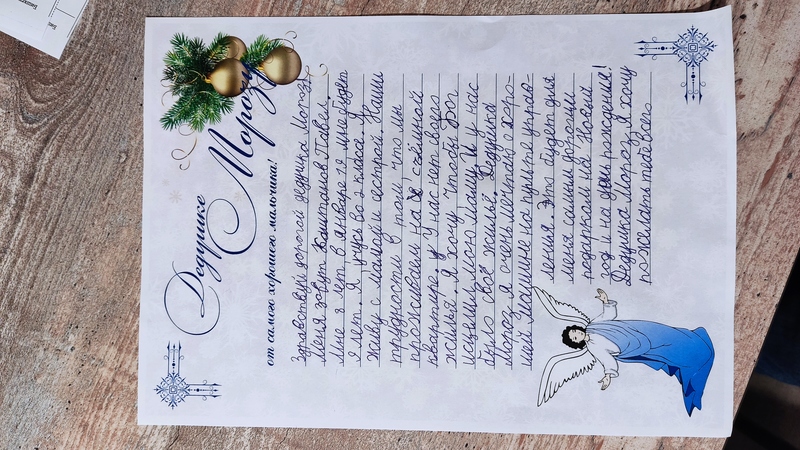 Дедушке
Морозу
от самого хорошего мальчика!
Здравствуй дорогой дедушка Мороз.
Меня зовут Каштанов Павел.
Мне 8 лет в январе 18 мне будет
9 лет. Я учусь во 2 класса. Я
живу с мамой и сестрой. Наши
трудности в том, что мы
проживаем на съёмной
квартире. У нас нет своего
жилья. Я хочу чтобы Бог
исцелил мою маму. И у нас
было своё жильё. Дедушка
Мороз я очень мечтаю о хоро-
шей машине на пульте управ-
ления. Это будет для
меня самым дорогим
подарком на Новый
год и на день рождения!
Дедушка Мороз, я хочу
пожелать тебе всего